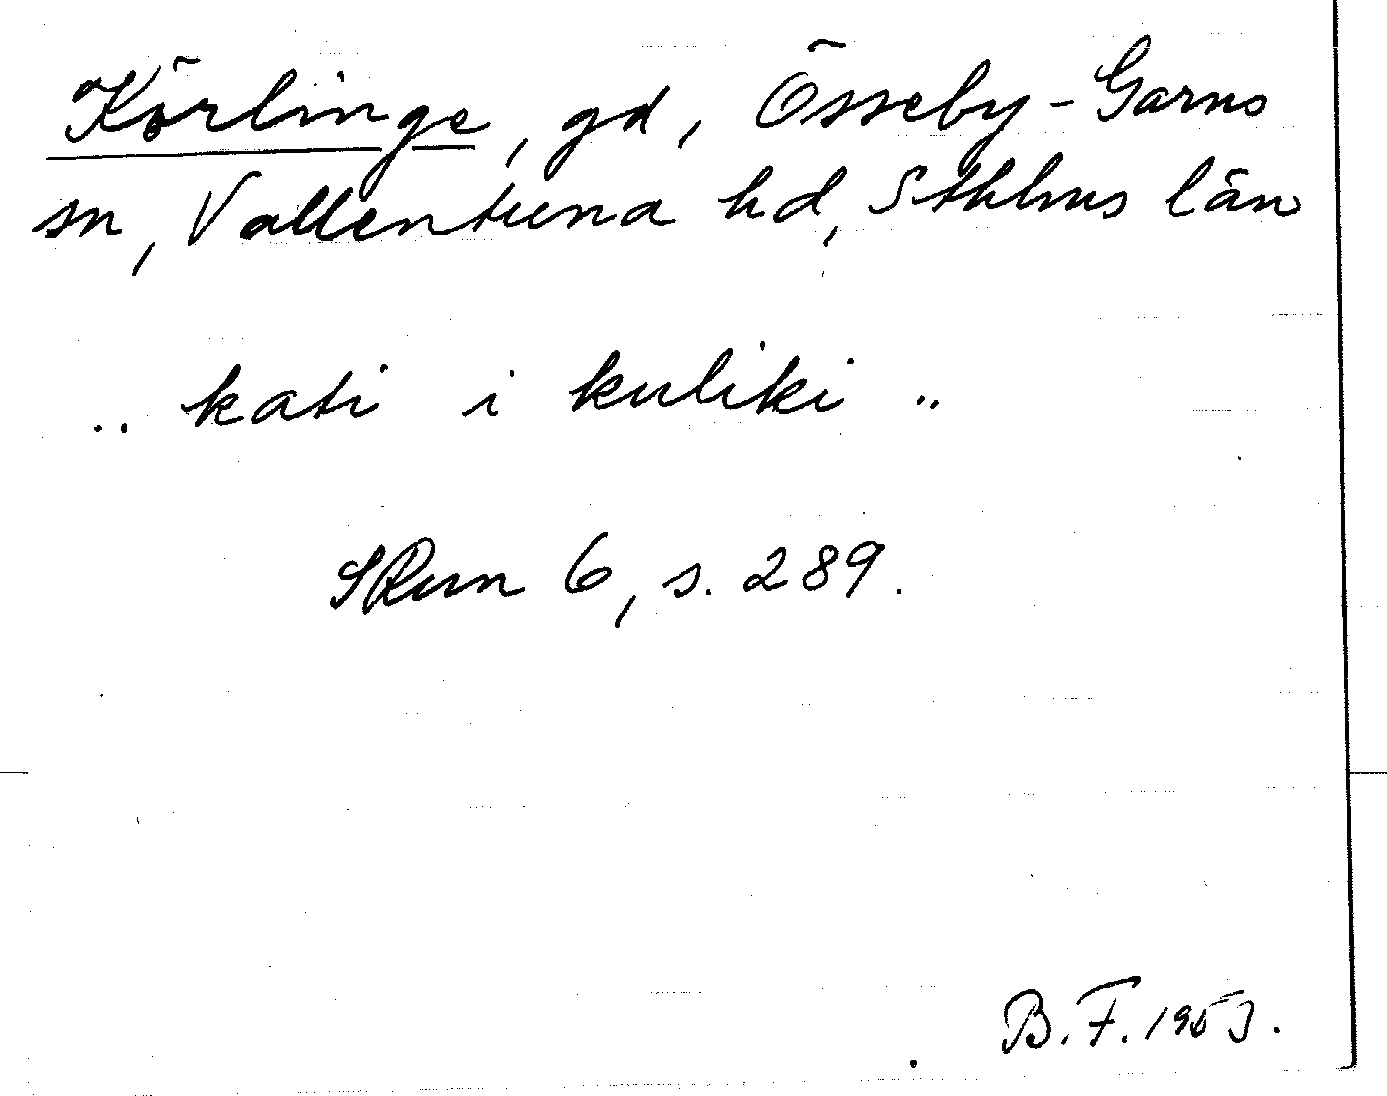 Körlinge, gd, Össeby-Garns
sn, Vallentuna hd, Sthlms län
.. kati i kuliki ..
SRun 6, s. 289.
B.F. 1953.